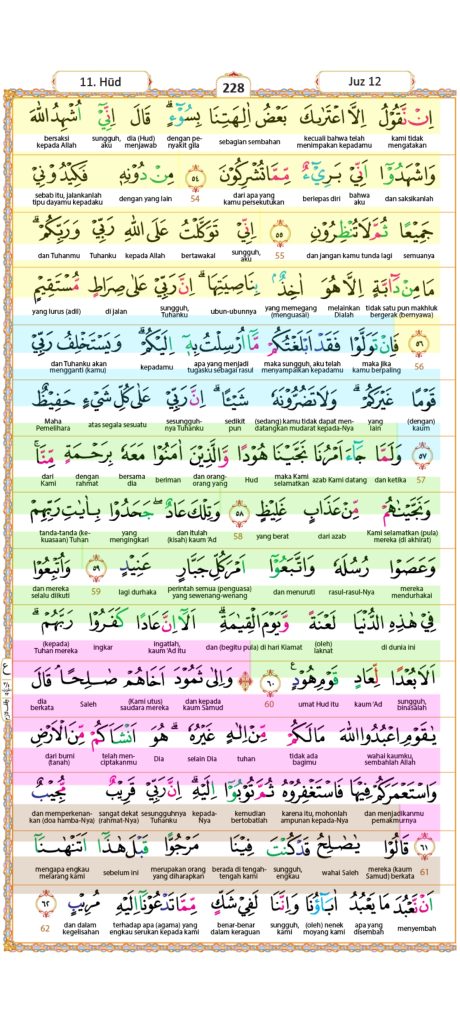 11. Hūd
228
Juz 12
اِنْ نَّقُوْلُ اِلَّا اعْتَرٰىكَ بَعْضُ اٰلِهَتِنَا بِسُوْۤءٍ ۗ قَالَ اِنِّيْٓ اُشْهِدُ اللّٰهَ
kami tidak mengatakan kecuali bahwa telah menimpakan kepadamu sebagian sembahan dengan pe-nyakit gila dia (Hud) menjawab sungguh, aku bersaksi kepada Allah
وَاشْهَدُوْٓا اَنِّيْ بَرِيْۤءٌ مِّمَّا تُشْرِكُوْنَ ۝٥٤ مِنْ دُوْنِهٖ فَكِيْدُوْنِيْ
dan saksikanlah bahwa aku berlepas diri dari apa yang kamu persekutukan 54 dengan yang lain sebab itu, jalankanlah tipu dayamu kepadaku
جَمِيْعًا ثُمَّ لَا تُنْظِرُوْنِ ۝٥٥ اِنِّيْ تَوَكَّلْتُ عَلَى اللّٰهِ رَبِّيْ وَرَبِّكُمْ ۗ
semuanya dan jangan kamu tunda lagi 55 sungguh, aku bertawakal kepada Allah Tuhanku dan Tuhanmu
مَا مِنْ دَاۤبَّةٍ اِلَّا هُوَ اٰخِذٌۢ بِنَاصِيَتِهَا ۗ اِنَّ رَبِّيْ عَلٰى صِرَاطٍ مُّسْتَقِيْمٍ
tidak satu pun makhluk bergerak (bernyawa) melainkan Dialah yang memegang (menguasai) ubun-ubunnya sungguh, Tuhanku di jalan yang lurus (adil)
۝٥٦ فَاِنْ تَوَلَّوْا فَقَدْ اَبْلَغْتُكُمْ مَّآ اُرْسِلْتُ بِهٖٓ اِلَيْكُمْ ۗ وَيَسْتَخْلِفُ رَبِّيْ
56 maka jika kamu berpaling maka sungguh, aku telah menyampaikan kepadamu apa yang menjadi tugasku sebagai rasul kepadamu dan Tuhanku akan mengganti (kamu)
قَوْمًا غَيْرَكُمْ ۗ وَلَا تَضُرُّوْنَهٗ شَيْـًٔا ۗ اِنَّ رَبِّيْ عَلٰى كُلِّ شَيْءٍ حَفِيْظٌ
(dengan) kaum yang lain (sedang) kamu tidak dapat men-datangkan mudarat kepada-Nya sedikit pun sesungguh-nya Tuhanku atas segala sesuatu Maha Pemelihara
۝٥٧ وَلَمَّا جَاۤءَ اَمْرُنَا نَجَّيْنَا هُوْدًا وَّالَّذِيْنَ اٰمَنُوْا مَعَهٗ بِرَحْمَةٍ مِّنَّا ۚ
57 dan ketika azab Kami datang maka Kami selamatkan Hud dan orang-orang yang beriman bersama dia dengan rahmat dari Kami
وَنَجَّيْنٰهُمْ مِّنْ عَذَابٍ غَلِيْظٍ ۝٥٨ وَتِلْكَ عَادٌ ۗ جَحَدُوْا بِاٰيٰتِ رَبِّهِمْ
Kami selamatkan (pula) mereka (di akhirat) dari azab yang berat 58 dan itulah (kisah) kaum 'Ad yang mengingkari tanda-tanda (ke-kuasaan) Tuhan
وَعَصَوْا رُسُلَهٗ وَاتَّبَعُوْٓا اَمْرَ كُلِّ جَبَّارٍ عَنِيْدٍ ۝٥٩ وَاُتْبِعُوْا
mereka mendurhakai rasul-rasul-Nya dan menuruti perintah semua (penguasa) yang sewenang-wenang lagi durhaka 59 dan mereka selalu diikuti
فِيْ هٰذِهِ الدُّنْيَا لَعْنَةً وَّيَوْمَ الْقِيٰمَةِ ۗ اَلَآ اِنَّ عَادًا كَفَرُوْا رَبَّهُمْ ۗ
di dunia ini (oleh) laknat dan (begitu pula) di hari Kiamat ingatlah, kaum 'Ad itu ingkar (kepada) Tuhan mereka
اَلَا بُعْدًا لِّعَادٍ قَوْمِ هُوْدٍ ۝٦٠ وَاِلٰى ثَمُوْدَ اَخَاهُمْ صٰلِحًا ۘ قَالَ
sungguh, binasalah kaum 'Ad umat Hud itu 60 dan kepada kaum Samud (Kami utus) saudara mereka Saleh dia berkata
يٰقَوْمِ اعْبُدُوا اللّٰهَ مَا لَكُمْ مِّنْ اِلٰهٍ غَيْرُهٗ ۗ هُوَ اَنْشَاَكُمْ مِّنَ الْاَرْضِ
wahai kaumku, sembahlah Allah tidak ada bagimu tuhan selain Dia Dia telah men-ciptakanmu dari bumi (tanah)
وَاسْتَعْمَرَكُمْ فِيْهَا فَاسْتَغْفِرُوْهُ ثُمَّ تُوْبُوْٓا اِلَيْهِ ۗ اِنَّ رَبِّيْ قَرِيْبٌ مُّجِيْبٌ
dan menjadikanmu pemakmurnya karena itu, mohonlah ampunan kepada-Nya kemudian bertobatlah kepada-Nya sesungguhnya Tuhanku sangat dekat (rahmat-Nya) dan memperkenan-kan (doa hamba-Nya)
۝٦١ قَالُوْا يٰصٰلِحُ قَدْ كُنْتَ فِيْنَا مَرْجُوًّا قَبْلَ هٰذَآ اَتَنْهٰىنَآ
61 mereka (kaum Samud) berkata wahai Saleh sungguh, engkau berada di tengah-tengah kami merupakan orang yang diharapkan sebelum ini mengapa engkau melarang kami
اَنْ نَّعْبُدَ مَا يَعْبُدُ اٰبَاۤؤُنَا وَاِنَّنَا لَفِيْ شَكٍّ مِّمَّا تَدْعُوْنَآ اِلَيْهِ مُرِيْبٍ ۝٦٢
menyembah apa yang disembah (oleh) nenek moyang kami sungguh, kami benar-benar dalam keraguan terhadap apa (agama) yang engkau serukan kepada kami dan dalam kegelisahan 62